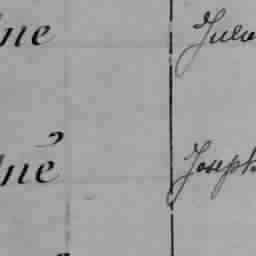 ne Jule
né Joseph